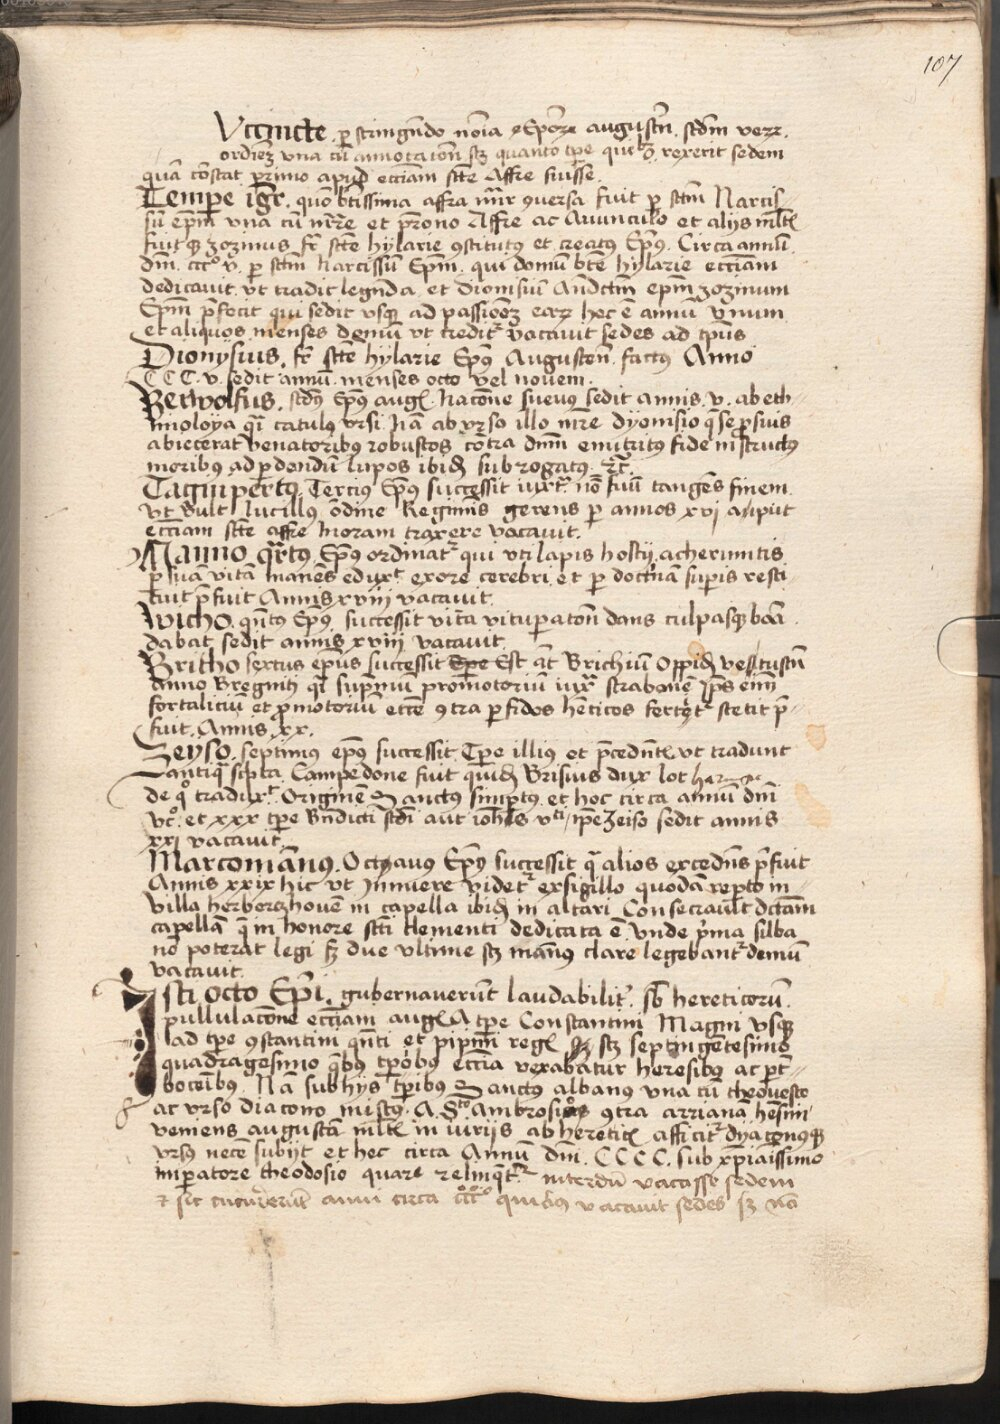 107
Vtcumcte perstringendo noi͞a Ep͞or͞u augusteñ. scd͞m ver͞u
ordinez vna cu͞ annotatione scz quanto tp͞e quilz rexerit sedem
qua͞ co͞stat primo apud eccl͞iam sc͞te Affre fuisse.
Tempe igr͞. quo b͞tissima affra m͞r ꝯuersa fuit p͞ sc͞tm Narcis-
su͞ ep͞m vna cu͞ m͞re et p͞rono Affre ac Auunculo et alijs mlt͞
fuitqʒ zozimus fr͞ sc͞te hylarie ꝯstitutus et creatus Ep͞us. Circa annu͞
dn͞i. ccc° v. p͞ sc͞tm Narcissu͞ Ep͞m. qui domu͞ b͞te hylarie eccl͞iam
dedicauit. vt tradit legenda. et dionisiu͞ ep͞m zozimum
Ep͞m p͞fecit qui sedit vsqʒ ad passione͞ ear͞u hec e͞ annu͞ vnum
et aliquos menses demu͞ vt creditr͞ vacauit sedes ad tp͞us
Dionysius. fr͞ sc͞te hylarie Ep͞us Augusteñ. factus Anno
CCC. v. sedit annu͞. menses octo vel nouem.
Berwolfus. scd͞us Ep͞us aug͞. Nac͞one sueuus sedit annis. v. ab eth-
imoloya q͞i catulus vrsi Na͞ ab vrso illo m͞re dyonisio q͞ se p͞ suis
abiecerat venatoribus robustos co͞tra dn͞m enutritus fide instructus
moribus ad p͞dendu͞ lupos ibid͞ subrogatus. etc͞.
Tagmpertus. Tercius Ep͞us successit iuxt͞ no͞ suu͞ tange͞s finem
vt vult lucillus o͞dine Regiminis gerens p͞ annos xvj apud
eccl͞iam sc͞te affre moram traxere vacauit.
Manno q͞rtus Ep͞us ordinatr͞ qui vti lapis hostij acheruntis
p͞ sua͞ vita͞ mane͞s eduxt͞ exore cerebri et p͞ doct͞na͞ sup͞is resti-
tuit p͞fuit Annis xviij vacauit.
Wicho. qn͞tus Ep͞us successit vit͞a vitup͞ato͞n dans culpasqʒ bo͞a
dabat sedit annis xviij vacauit
Britho sextus ep͞us successit Est at͞ Brichiu͞ Oppid͞ vestustu͞
anno Bregnitij q͞i sup͞mu͞ promotoriu͞ iux͞ strabone͞ Ip͞s eni͞
fortaliciu͞ et p͞motoriu͞ ecc͞e ꝯtra p͞fidos he͞ticos fertr͞ stetit p͞-
fuit. Annis. xx.
Zeyso. septimus ep͞us successit. Tp͞e illius et p͞cedent͞ vt tradunt
antiq͞ sc͞pta Campedone fuit quid͞ Brisius dux lothar
de q° traduxt͞ Origine͞ Sanctus simp͞tus et hoc circa annu͞ dn͞i
vc°. et xxx tp͞e Bn͞dicti scd͞i aut ioh͞is vti ip͞e Zeiso sedit annis
xxj vacauit
Marcoma͞nus. Octauus Ep͞us successit q͞ alios excedn͞s p͞fuit
Annis xxix hic vt Innuere videtr͞ ex sigillo quoda͞ rep͞to in
villa herbertzhoue͞ in capella ibid͞ in altari Consecrauit dc͞tam
capella͞ q͞ in honore sc͞ti clementi dedicata e͞ vnde p͞ma silba
no͞ poterat legi sʒ due vltime scz man͞us clare legebantr͞ demu͞
vacauit.
Isti octo Ep͞i. gubernauerut͞ laudabilitr͞. sb͞ hereticoru͞
pullulac͞one eccl͞iam aug͞ A tp͞e Constantini Magni vsqʒ
ad tp͞e ꝯstantini qn͞ti et pipini reg͞ scz septingentesimo
quadragesimo q͞bus tp͞orbus eccl͞ia vexabatur heresibus ac p͞t-
Na͞ sub hys tp͞ibus Sanctus albanus vna cu͞ theonesto
ac vrso diacono A Sto Ambrosio ꝯtra arriana͞ he͞sim
veniens augusta͞ mlt͞ iniurijs ab heretic͞ afficitr͞ dyaconusqʒ
vrsus nece͞ subijt et hec circa Annu͞ dn͞i. CCCC. sub xp͞ianissimo
imp͞atore theodosio quare relinqtr͞ interdu͞ vacasse sedem
et sic cucurrerut͞ anni circa ccc° quibus vacauit sedes sʒ no͞